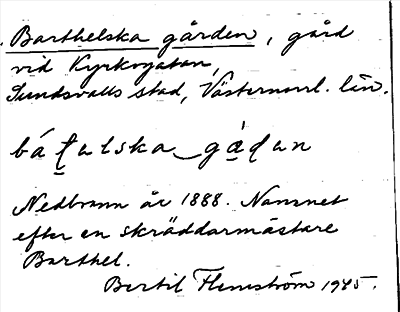 Barthelska gården, gård
vid Kyrkogatan,
Sundsvalls stad, Västernorrl. län.
bát̠alska gá̠ɖan
Nedbrann år 1888. Namnet
efter en skräddarmästare
Barthel.
Bertil Flemström 1945.